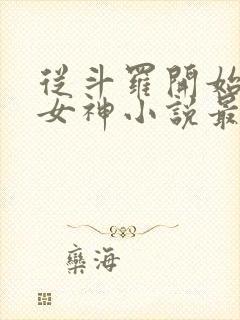 從斗羅開始
女神小說最
欒海